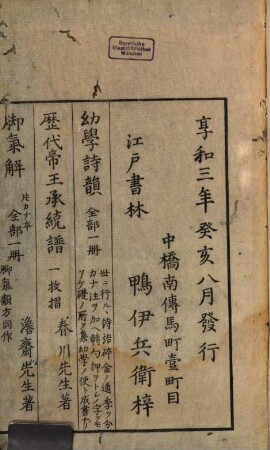 Bayerische
Staatsbibliothek
München
享和三年癸亥八月發行
中橋南傳馬町壹町目
江戸書林
鴨伊兵衛梓
幼學詩韻 全部一冊
世ニ行ルヽ詩
歴代帝王承統譜 一枚摺
春川先生著
脚氣解 片カナ付 全部一冊
脚氣類方同作
先生著